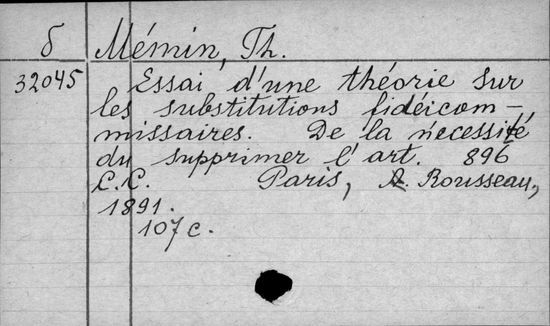 б Mémin, Th.
32045 Essai d'une théorie sur
les substitutions fidéicom-
missaires. De la necessité
du supprimer l'art. 896
C.C. Paris, A. Rousseau,
1891.
107 c.